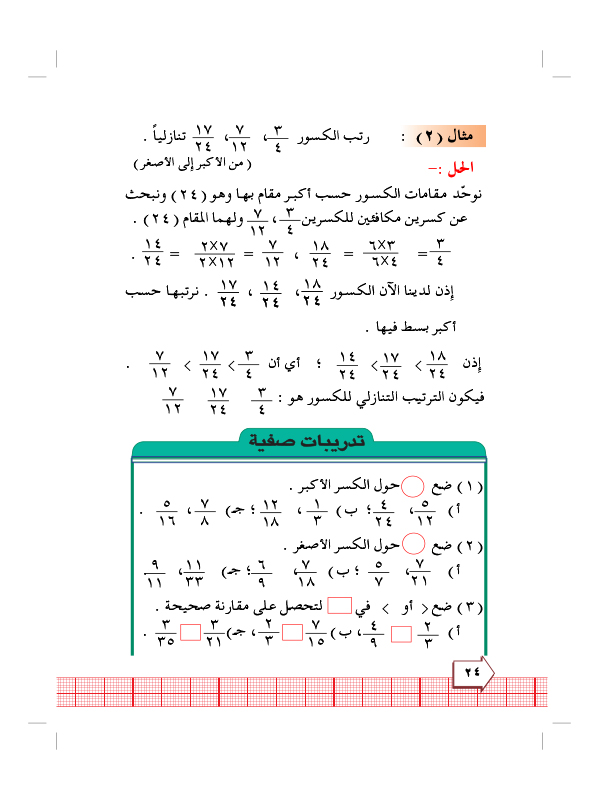 مثال (٢) : رتب الكسور ٣/٤ ، ٧/١٢ ، ١٧/٢٤ تنازلياً .
(من الأكبر إلى الأصغر)
الحل :-
نوحّد مقامات الكسور حسب أكبر مقام بها وهو (٢٤) ونبحث
عن كسرين مكافئين للكسرين ٣/٤ ، ٧/١٢ ولهما المقام (٢٤) .
٣/٤ = ٣×٦/٤×٦ = ١٨/٢٤ ، ٧/١٢ = ٧×٢/١٢×٢ = ١٤/٢٤ .
إذن لدينا الآن الكسور ١٨/٢٤ ، ١٤/٢٤ ، ١٧/٢٤ . نرتبها حسب
أكبر بسط فيها .
إذن ١٨/٢٤ > ١٧/٢٤ > ١٤/٢٤ ؛ أي أن ٣/٤ > ١٧/٢٤ > ٧/١٢ .
فيكون الترتيب التنازلي للكسور هو : ٣/٤ ١٧/٢٤ ٧/١٢
تدريبات صفية
(١) ضع ◯ حول الكسر الأكبر .
أ) ٥/١٢ ، ٤/٢٤ ؛ ب) ١/٣ ، ١٢/١٨ ؛ جـ) ٧/٨ ، ٥/١٦ .
(٢) ضع ◯ حول الكسر الأصغر .
أ) ٧/٢١ ، ٥/٧ ؛ ب) ٧/١٨ ، ٦/٩ ؛ جـ) ١١/٣٣ ، ٩/١١ .
(٣) ضع > أو < في □ لتحصل على مقارنة صحيحة .
أ) ٢/٣ □ ٤/٩ ، ب) ٧/١٥ □ ٢/٣ ، جـ) ٣/٢١ □ ٣/٣٥ .
٢٤